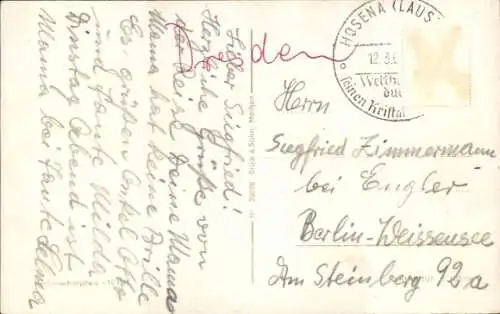 Lieber Siegfried!
Herzliche Grüße von
der Reise Deine Mama
Mama hat keine Brille
Es grüßen Onkel Otto
und Tante Milda
Dinstag Abend ist
Mama bei Tante Selma
HOSENA (LAUS
12.3.
Weltb
du
seinen Kristal
Herrn
Siegfried Zimmermann
bei Engler
Berlin-Weissensee
Am Steinberg 92a